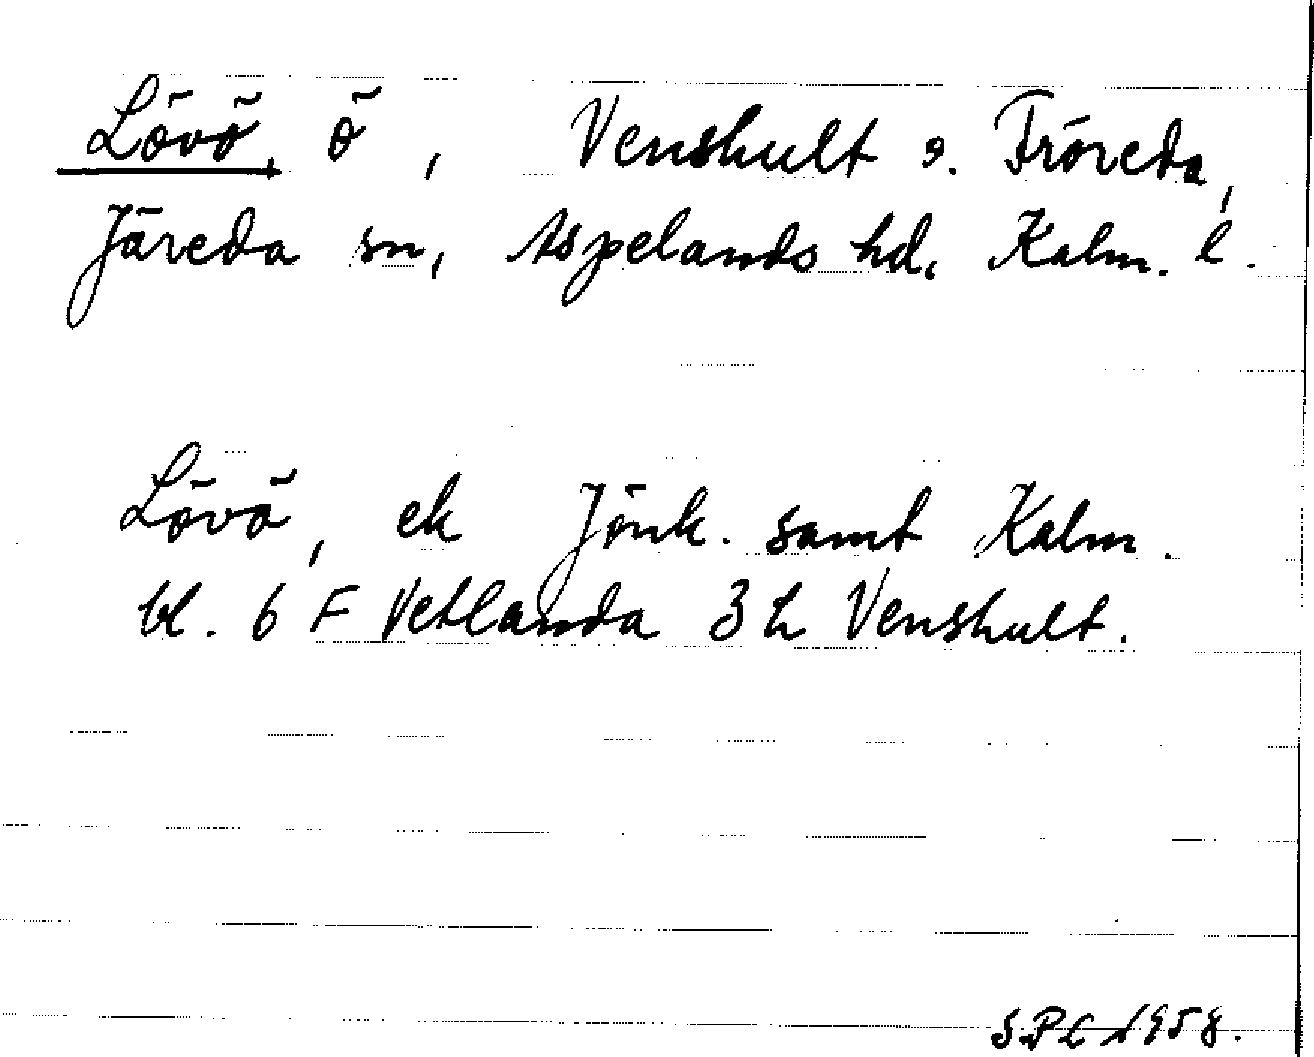 Lövö, ö, Venshult o. Fröreda,
Järeda sn, Aspelands hd, Kalm. l.
Lövö, ek Jönk. samt Kalm.
bl. 6 F Vetlanda 3 h Venshult.
S.P.C 1958.